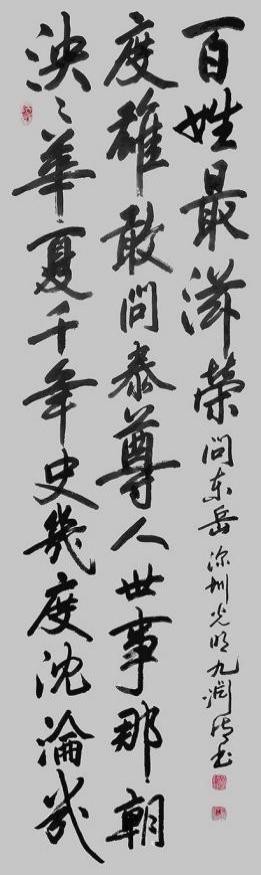 泱泱華夏千年史幾度沈淪幾
度雄敢問泰尊人世事那朝
百姓最滋榮 問东岳 深圳光明九澗书